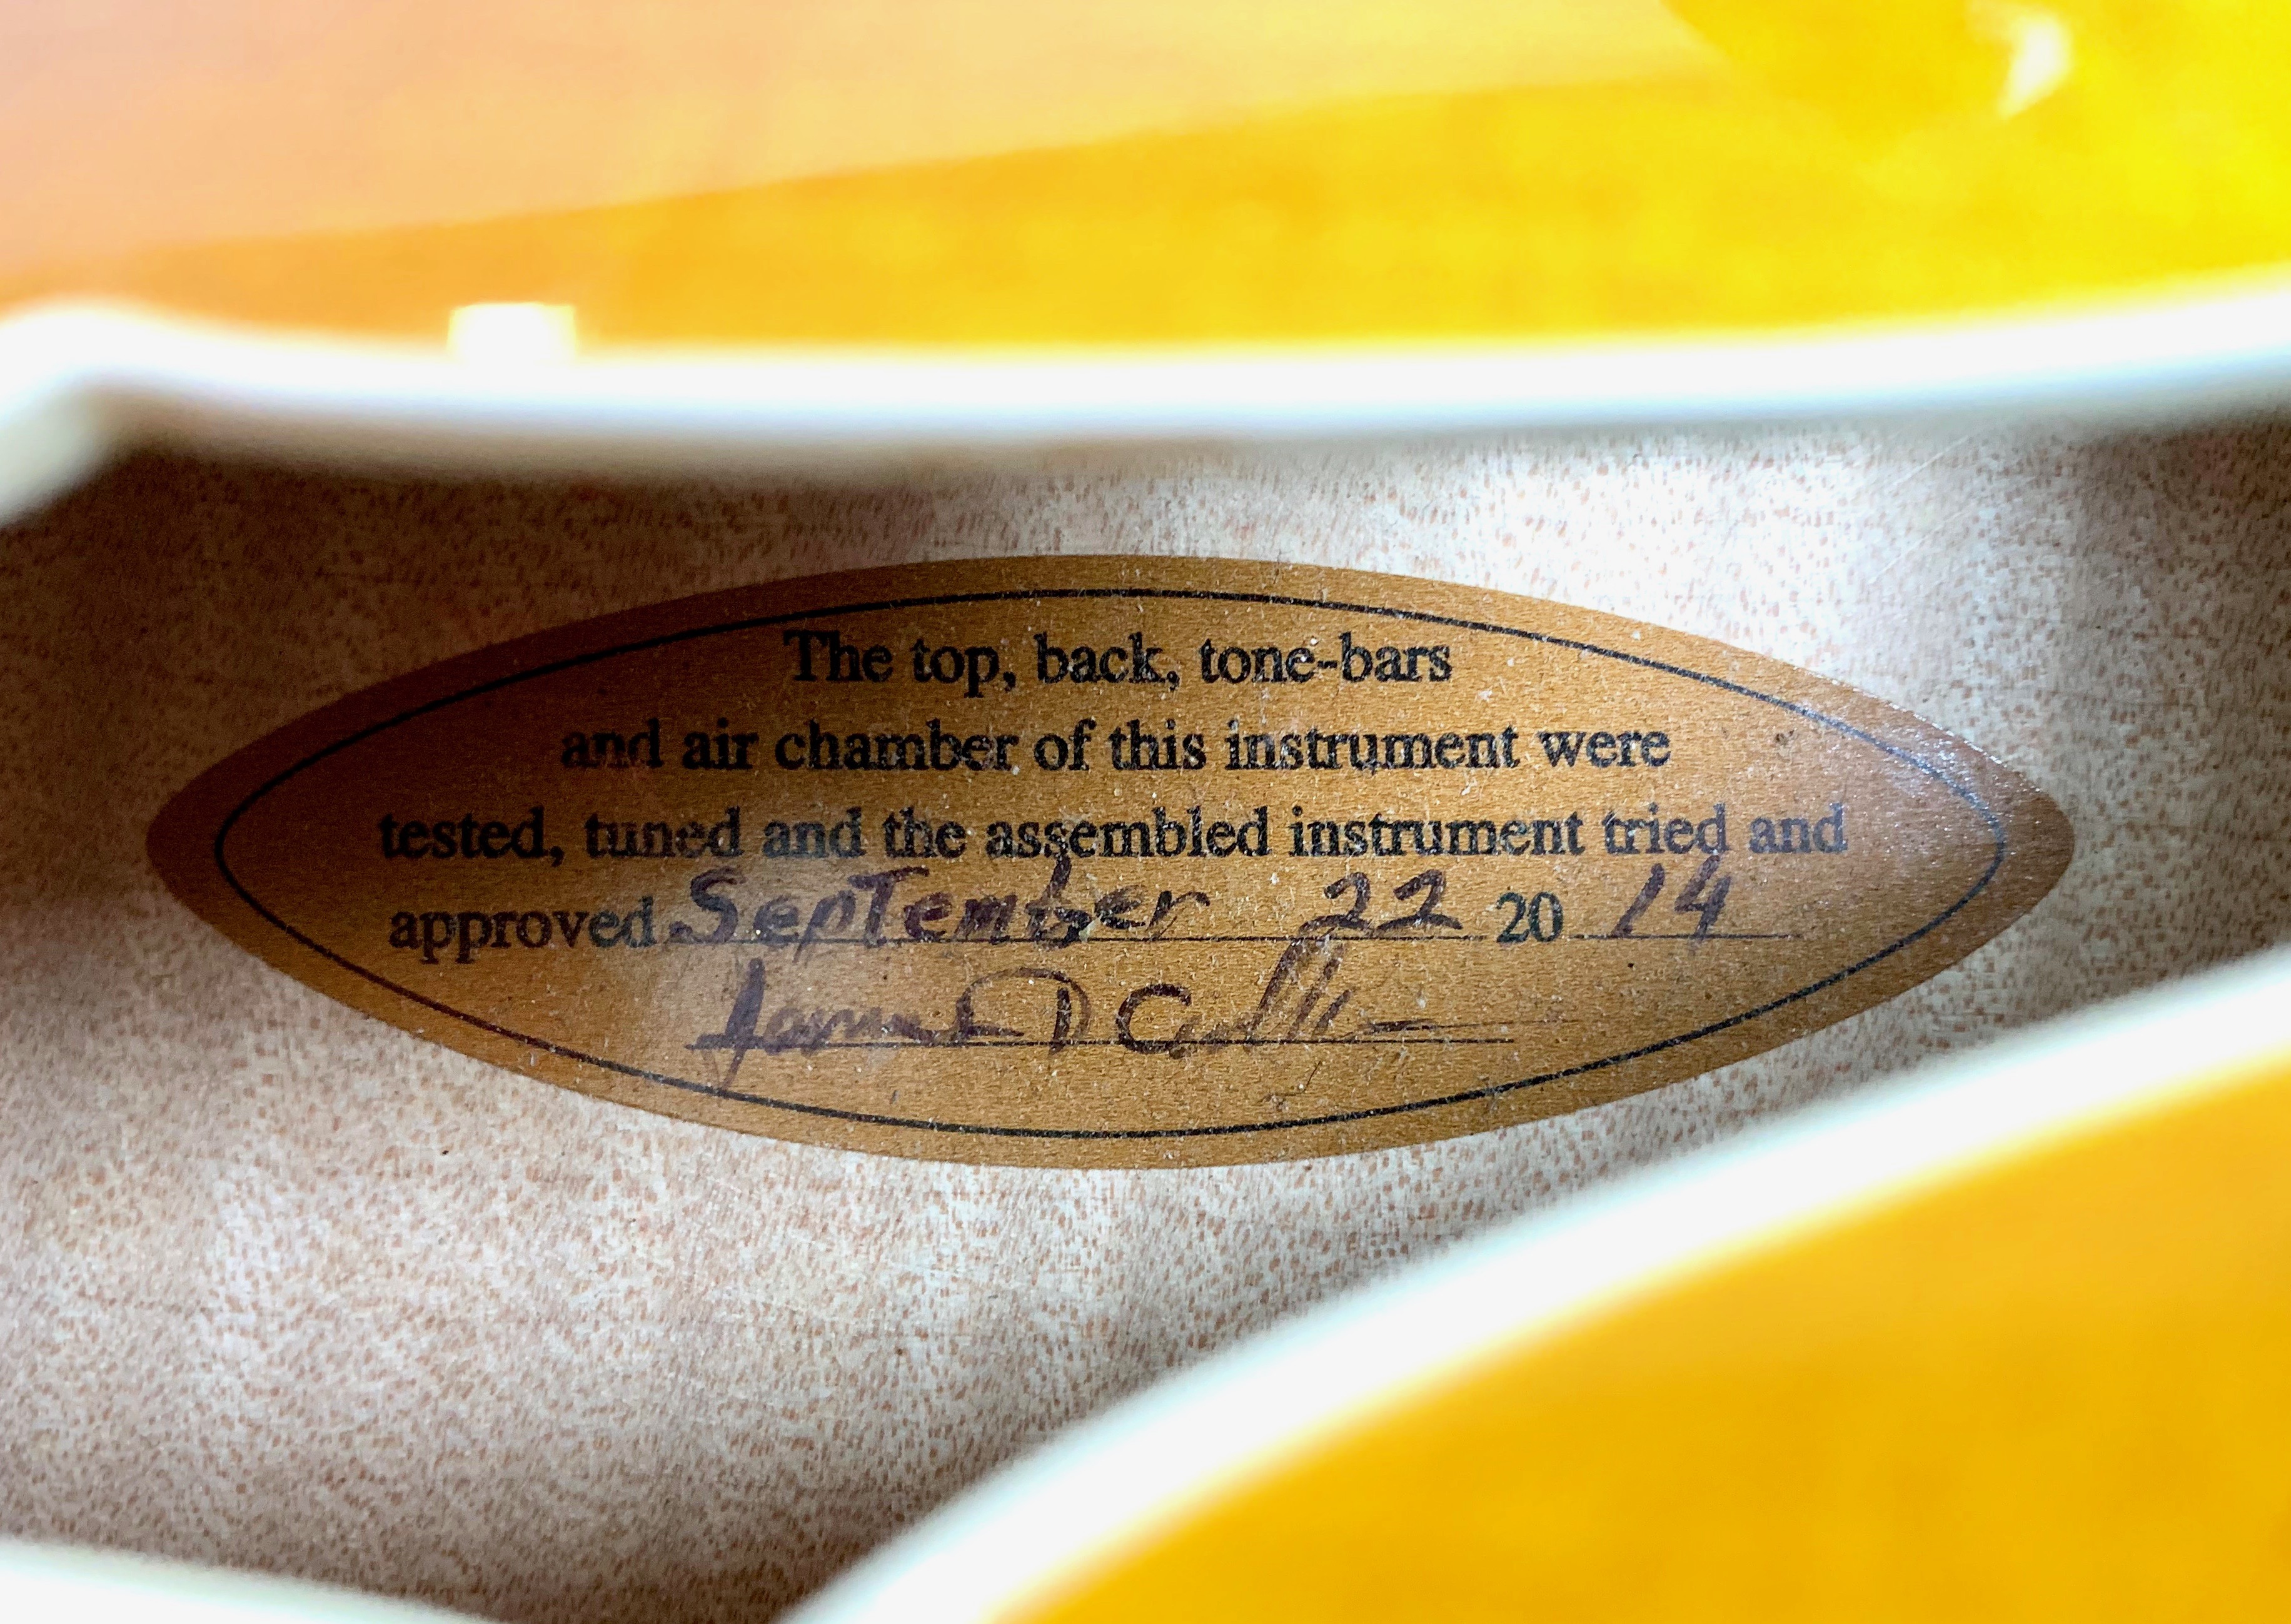 The top, back, tone-bars
and air chamber of this instrument were
tested, tuned and the assembled instrument tried and
approved September 22 20 14
James D